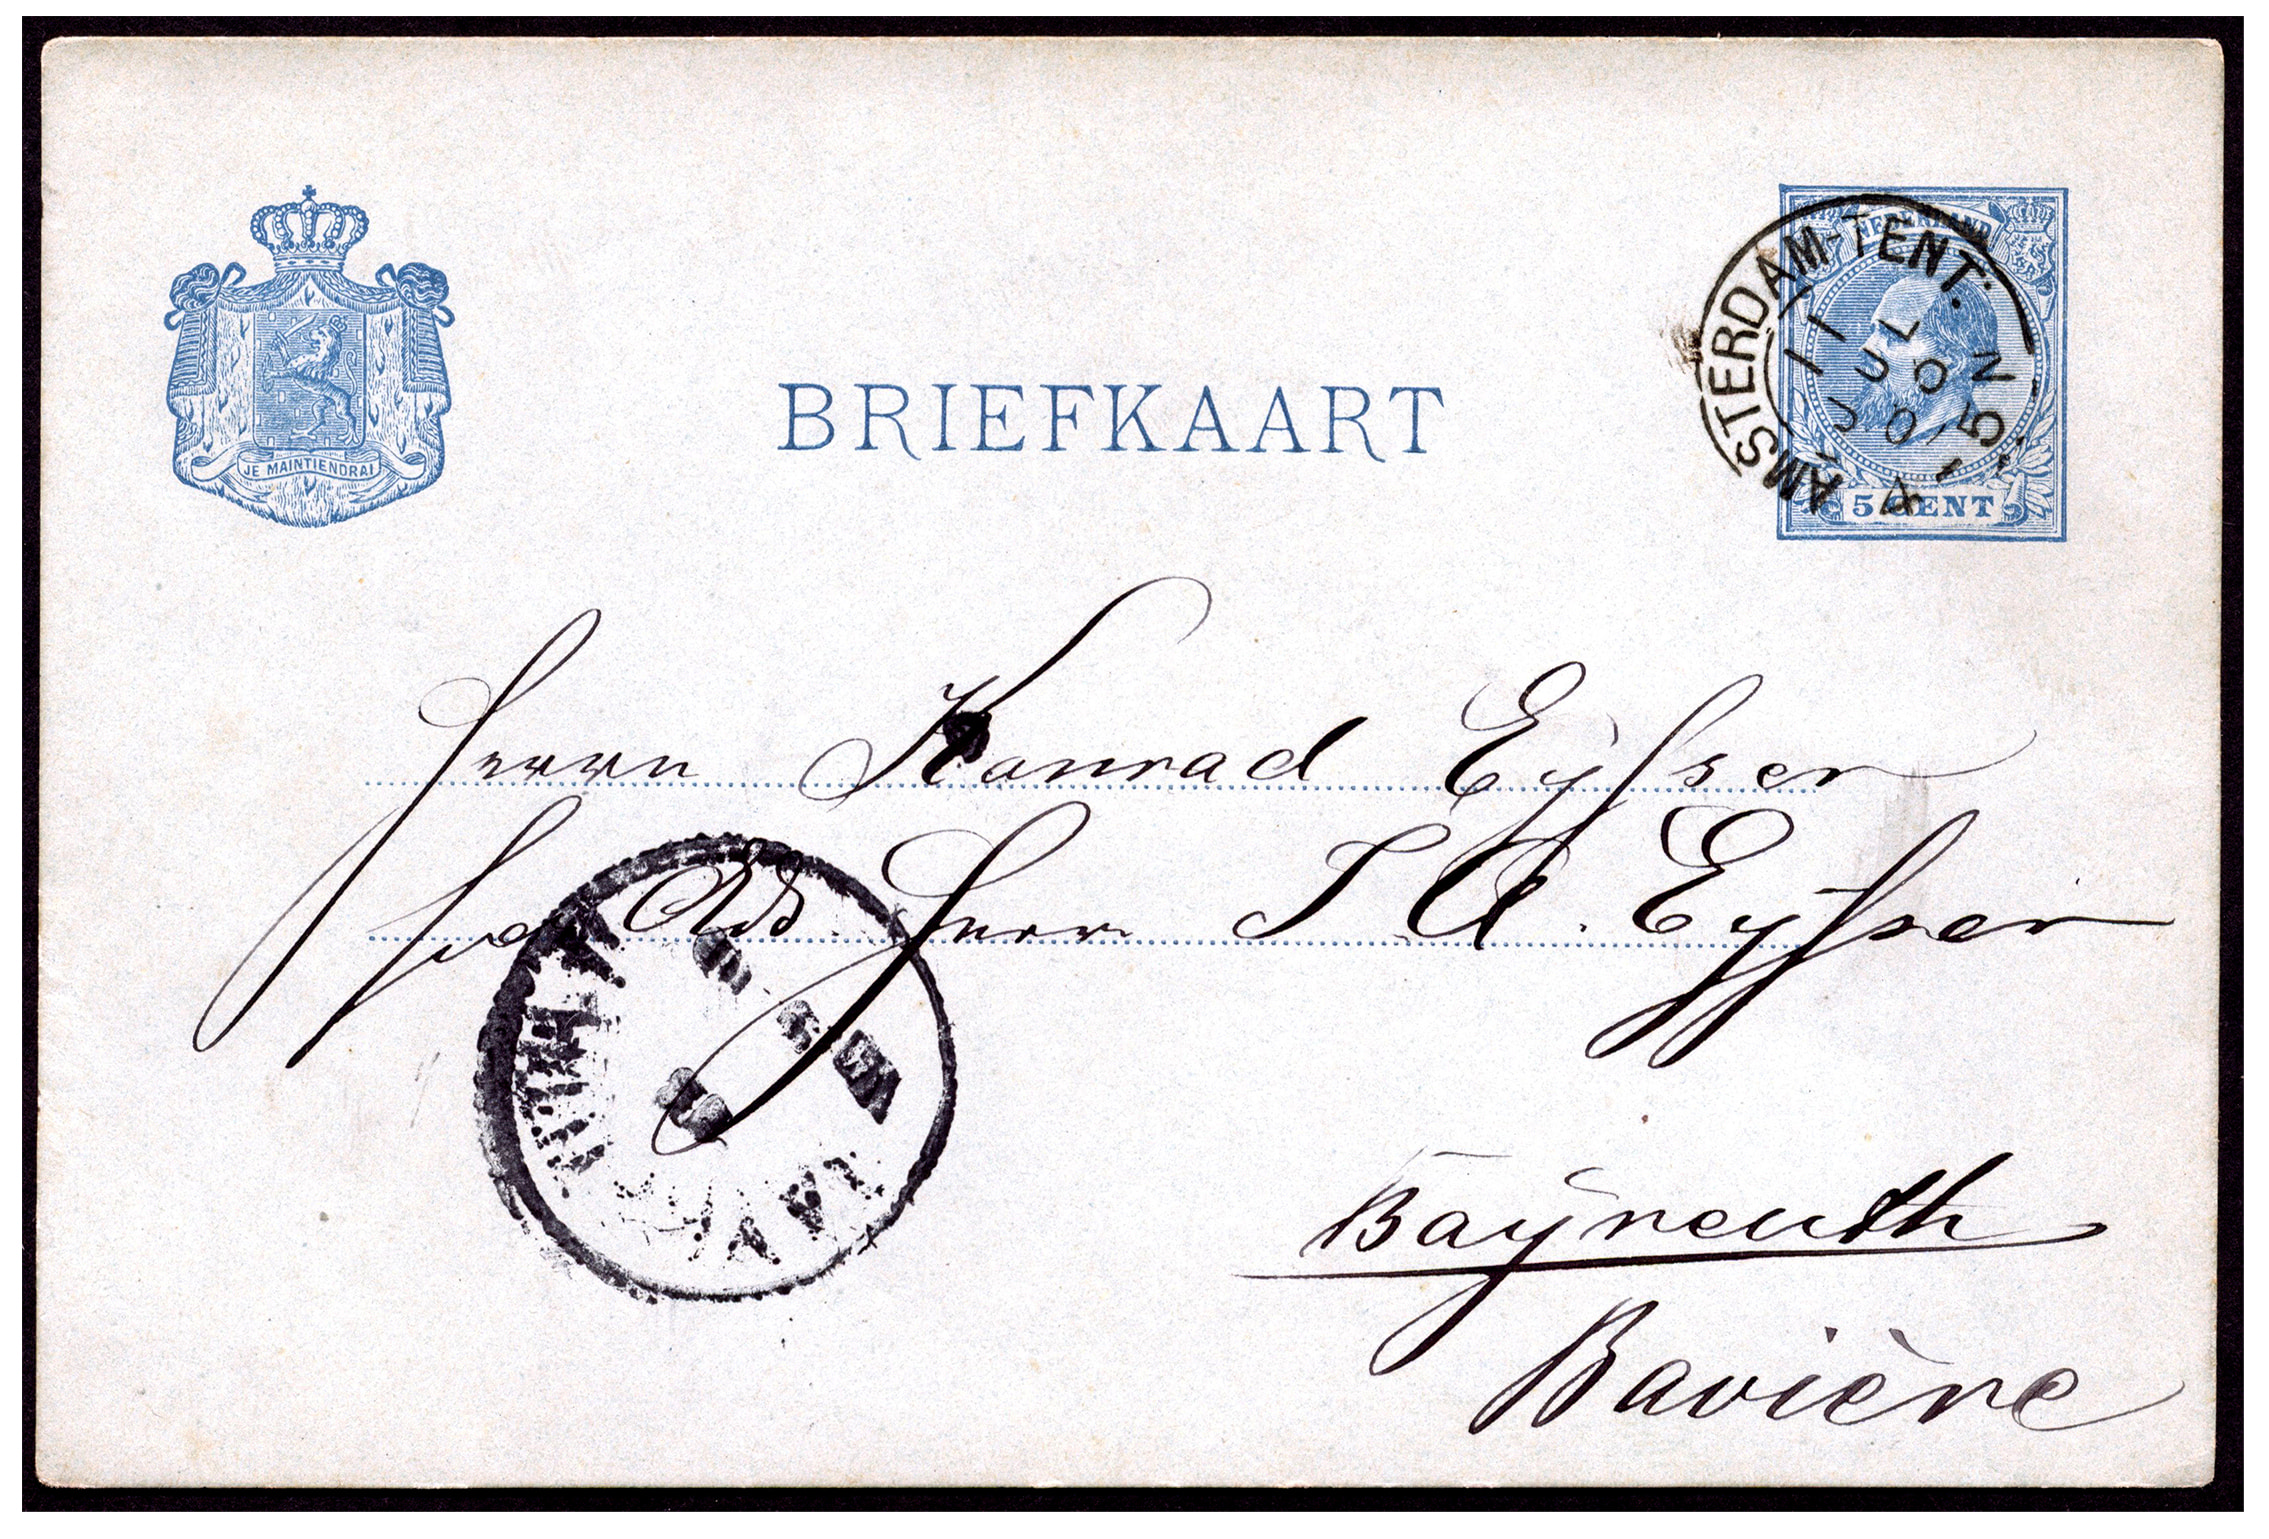 JE MAINTIENDRAI
BRIEFKAART
NEDERLAND
5 CENT
AMSTERDAM-TENT:
Herrn Konrad Eyßser
Herr J. A. Eyßser
Bayreuth
Bavière